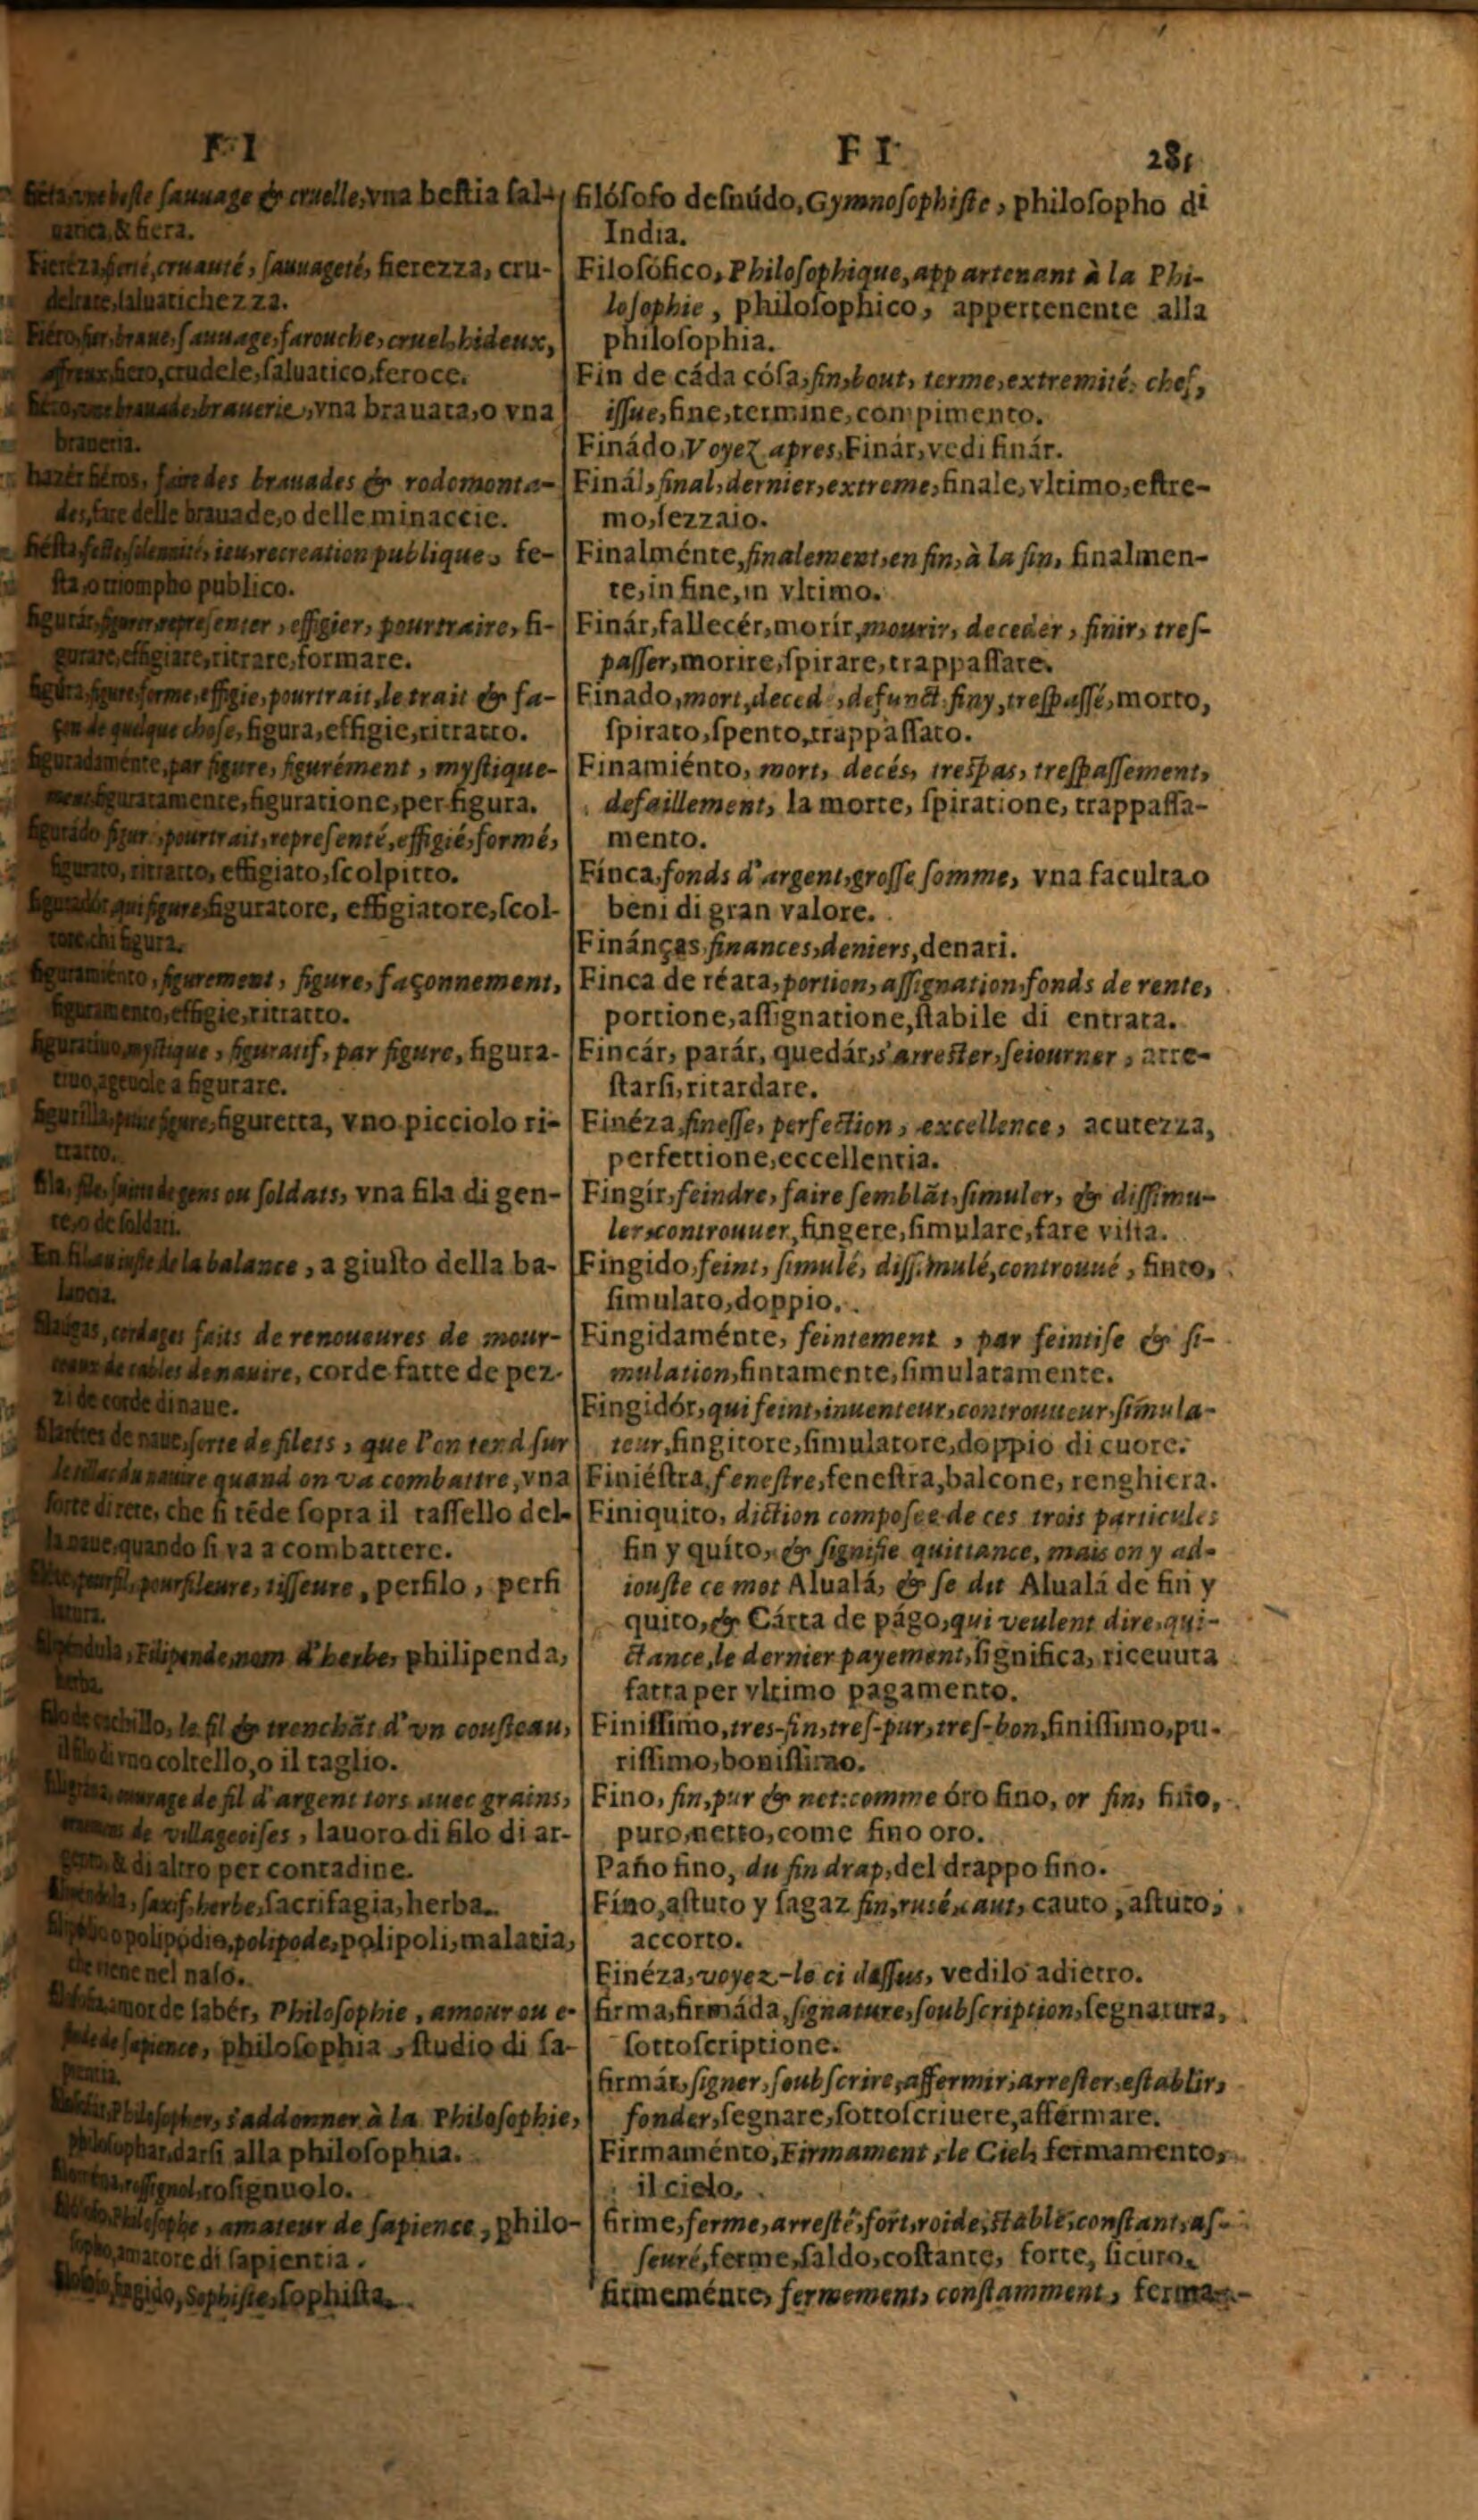 F I
ſauuage & cruelle, vna beſtia ſal-
& fiera.
cruauté, ſauuageté, fierezza, cru-
ſaluatichezza.
braue, ſauuage, farouche, cruel, hideux,
fiero, crudele, ſaluatico, feroce.
brauade, brauerie, vna brauata, o vna
braueria.
hazér fiéros, faire des brauades & rodomonta-
des, fare delle brauade, o delle minaccie.
ieu, recreation publique, fe-
ſta, o triompho publico.
repreſenter, effigier, pourtraire, fi-
gurare, effigiare, ritrare, formare.
figure, forme, effigie, pourtrait, le trait & fa-
çon de quelque choſe, figura, effigie, ritratto.
figuradaménte, par figure, figurément, myſtique-
figuratamente, figuratione, per figura.
figurádo pourtrait, repreſenté, effigié, formé,
figurato, ritratto, effigiato, ſcolpitto.
qui figure, figuratore, effigiatore, ſcol-
tore, chi figura.
figuramiénto, figurement, figure, façonnement,
figuramento, effigie, ritratto.
figuratiuo, myſtique, figuratif, par figure, figura-
tiuo, ageuole a figurare.
figurilla, petite figure, figuretta, vno picciolo ri-
tratto.
fila, file, de gens ou ſoldats, vna fila di gen-
te, o de ſoldati.
de la balance, a giuſto della ba-
lancia.
cordages faits de renoueures de mour-
de cables de nauire, corde fatte de pez-
zi de corde di naue.
de naue, ſorte de filets, que l'on tend ſur
le tillac du nauire quand on va combattre, vna
ſorte di rete, che ſi tẽde ſopra il taſſello del-
la naue, quando ſi va a combattere.
pourfileure, tiſſeure, perfilo, perfi
latura.
Filipende, nom d'herbe, philipenda,
herba.
filo de cuchillo, le fil & trenchãt d'vn couſteau,
il filo di vno coltello, o il taglio.
ouurage de fil d'argent tors auec grains,
de villageoiſes, lauoro di filo di ar-
gento, & di altro per contadine.
ſaxif. herbe, ſacrifagia, herba.
o polipódio, polipode, polipoli, malatia,
che viene nel naſo.
amor de ſabér, Philoſophie, amour ou e-
ſtude de ſapience, philoſophia, ſtudio di ſa-
pientia.
Philoſopher, s'addonner à la Philoſophie,
philoſophar, darſi alla philoſophia.
roſſignol, roſignuolo.
Philoſophe, amateur de ſapience, philo-
ſopho, amatore di ſapientia.
fingido, Sophiſte, ſophiſta.
F I 281
filóſofo deſnúdo, Gymnoſophiſte, philoſopho di
India.
Filoſófico, Philoſophique, appartenant à la Phi-
loſophie, philoſophico, appertenente alla
philoſophia.
Fin de cáda cóſa, fin, bout, terme, extremité, chef,
iſſue, fine, termine, compimento.
Finádo, Voyez apres, Finár, vedi finár.
Finál, final, dernier, extreme, finale, vltimo, eſtre-
mo, ſezzaio.
Finalménte, finalement, en fin, à la fin, finalmen-
te, in fine, in vltimo.
Finár, fallecér, morír, mourir, deceder, finir, treſ-
paſſer, morire, ſpirare, trappaſſare.
Finado, mort, deced, defunct, finy, treſpaſſé, morto,
ſpirato, ſpento, trappaſſato.
Finamiénto, mort, decés, treſpas, treſpaſſement,
defaillement, la morte, ſpiratione, trappaſſa-
mento.
Fínca, fonds d'argent, groſſe ſomme, vna faculta, o
beni di gran valore.
Finánças, finances, deniers, denari.
Finca de réata, portion, aſſignation, fonds de rente,
portione, aſſignatione, ſtabile di entrata.
Fincár, parár, quedár, s'arreſter, ſeiourner, arre-
ſtarſi, ritardare.
Finéza, fineſſe, perfection, excellence, acutezza,
perfettione, eccellentia.
Fingír, feindre, faire ſemblãt, ſimuler, & diſſimu-
ler, controuuer, fingere, ſimulare, fare viſta.
Fingido, feint, ſimulé, diſſimulé, controuué, finto,
ſimulato, doppio.
Fingidaménte, feintement, par feintiſe & ſi-
mulation, fintamente, ſimulatamente.
Fingidór, qui feint, inuenteur, controuueur, ſimula-
teur, fingitore, ſimulatore, doppio di cuore.
Finiéſtra, feneſtre, feneſtra, balcone, renghiera.
Finiquito, diction compoſee de ces trois particules
fin y quíto, & ſignifie quittance, mais on y ad-
iouſte ce mot Alualá, & ſe dit Alualá de fin y
quito, & Cárta de págo, qui veulent dire, qui-
ctance, le dernier payement, ſignifica, riceuuta
fatta per vltimo pagamento.
Finiſſimo, tres-fin, treſ-pur, treſ-bon, finiſſimo, pu-
riſſimo, boniſſimo.
Fino, fin, pur & net: comme óro fino, or fin, fino,
puro, netto, come fino oro.
Paño fino, du fin drap, del drappo fino.
Fíno, aſtuto y ſagaz fin, ruſé, caut, cauto, aſtuto,
accorto.
Finéza, voyez-le ci deſſus, vedilo adietro.
firma, firmáda, ſignature, ſoubſcription, ſegnatura,
ſottoſcriptione.
firmár, ſigner, ſoubſcrire, affermir, arreſter, eſtablir,
fonder, ſegnare, ſottoſcriuere, affermare.
Firmaménto, Firmament, le Ciel, fermamento,
il cielo.
firme, ferme, arreſté, fort, roide, ſtable, conſtant, aſ-
ſeuré, ferme, ſaldo, coſtante, forte, ſicuro.
firmeménte, fermement, conſtamment, ferma-